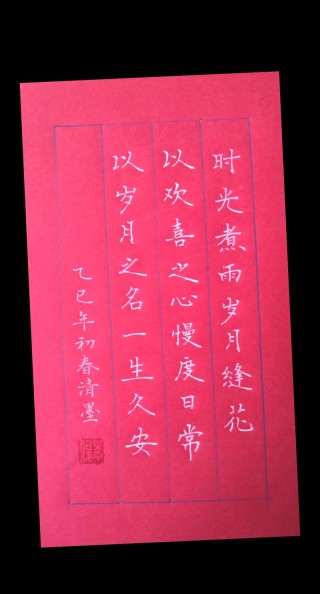 时光煮雨岁月缝花
以欢喜之心慢度日常
以岁月之名一生久安
乙巳年初春清墨